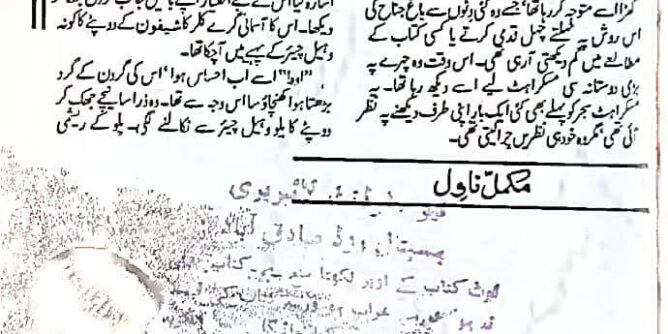 کھڑا اسے متوجہ کر رہا تھا، جسے وہ کئی دنوں سے باغ جناح کی
اس روش پہ ٹہلتے چہل قدمی کرتے یا کسی کتاب کے
مطالعے میں گم دیکھتی آ رہی تھی۔ اس وقت وہ چہرے پہ
بڑی دوستانہ سی مسکراہٹ لیے اسے دیکھ رہا تھا۔ یہ
مسکراہٹ سحر کو پہلے بھی کئی ایک بار اپنی طرف دیکھنے پہ نظر
آئی تھی، مگر وہ خود ہی نظریں چرا لیتی تھی۔
دیکھا۔ اس کا آسمانی گرے کلر کا شیفون کے دوپٹے کا کونہ
وہیل چیئر کے پہیے میں آچکا تھا۔
"اوہ!" اسے اب احساس ہوا، اس کی گردن کے گرد
بڑھتا ہوا کھنچاؤ سا اس وجہ سے تھا۔ وہ ذرا سا نیچے جھک کر
دوپٹے کا پلو وہیل چیئر سے نکالنے لگی۔ پلو کے ریشمی
مکمل ناول
لائبریری
صادق آباد
کتاب کے اوپر لکھنا منع ہے۔ کتاب